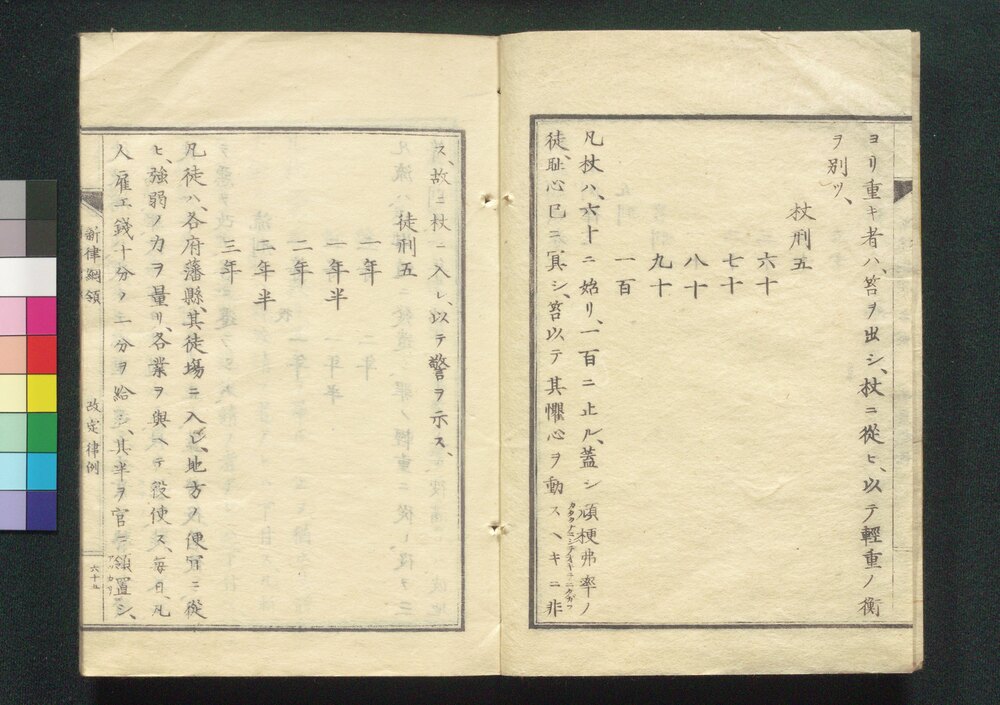 ヨリ重キ者ハ、笞ヲ出シ、杖ニ從ヒ、以テ輕重ノ衡
ヲ別ツ、
杖刑五
六十
七十
八十
九十
一百
凡杖ハ、六十ニ始リ、一百ニ止ル、蓋シ頑梗弗率ノ
徒、耻心已ニ冥シ、笞以テ其懼心ヲ動スヘキニ非
ス、故ニ杖ニ入レ、以テ警ヲ示ス、
徒刑五
一年
一年半
二年
二年半
三年
凡徒ハ、各府藩縣、其徒塲ニ入レ、地方ノ便宜ニ從
ヒ、強弱ノ力ヲ量リ、各業ヲ與ヘテ役使ス、毎日、凡
人雇工錢十分ノ一分ヲ給シ、其半ヲ官ニ領置シ、
新律綱領
改定律例